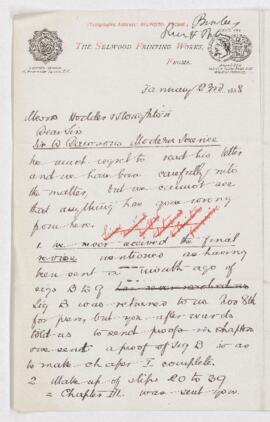 (Telegraphic Address: SELWOOD, FROME.)
THE SELWOOD PRINTING WORKS,
FROME.
January 2nd 1888
Messrs Hodder & Stoughton
Dear Sirs
Sir W Dawson's Modern Science
We much regret to read his letter
and we have been carefully into
the matter, but we cannot see
that anything has gone wrong
from here.
1. We never received the final
revise mentioned as having
been sent a month ago of
sigs B to G
Sig B was returned to us Nov 8th
for press, but you afterwards
told us to send proofs in chapters
one send a proof of sig B so as
to make chapter I complete.
2 Make up of slips 20 to 39
= Chapter III. was sent you